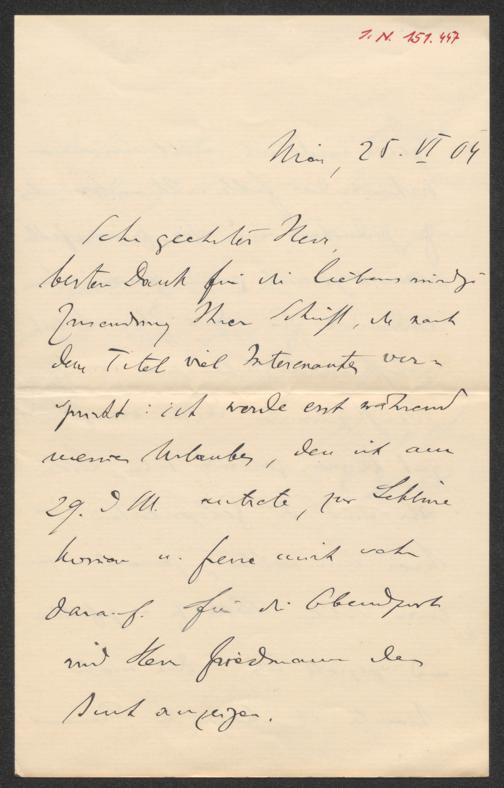 I. N. 151.447
Wien, 25. VI 04
Sehr geehrter Herr,
besten Dank für die liebenswürdige
Zusendung Ihrer Schrift, die nach
dem Titel viel Interessantes ver-
spricht: ich werde erst während
meines Urlaubes, den ich am
29. d M. antrete, zur Lektüre
kommen u. freue mich sehr
darauf. Für die Abendpost
wird Herr Friedmann das
Buch anzeigen.